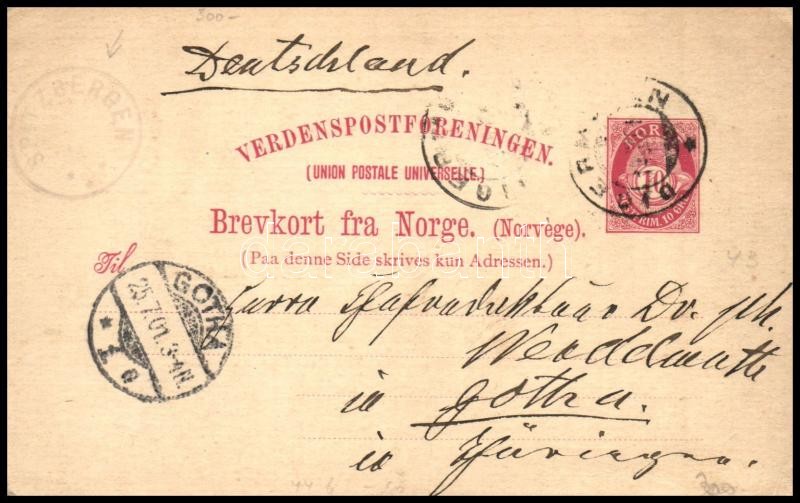 300-
Deutschland.
SPITZBERGEN
VERDENSPOSTFORENINGEN.
(UNION POSTALE UNIVERSELLE.)
NORGE
10
Brevkort fra Norge. (Norvège).
(Paa denne Side skrives kun Adressen.)
Til
43
GOTHA
25.7.01.3-4N.
* 1 e
Herrn Dr. ph.
in Gotha.
in Thüringen.
darabanth